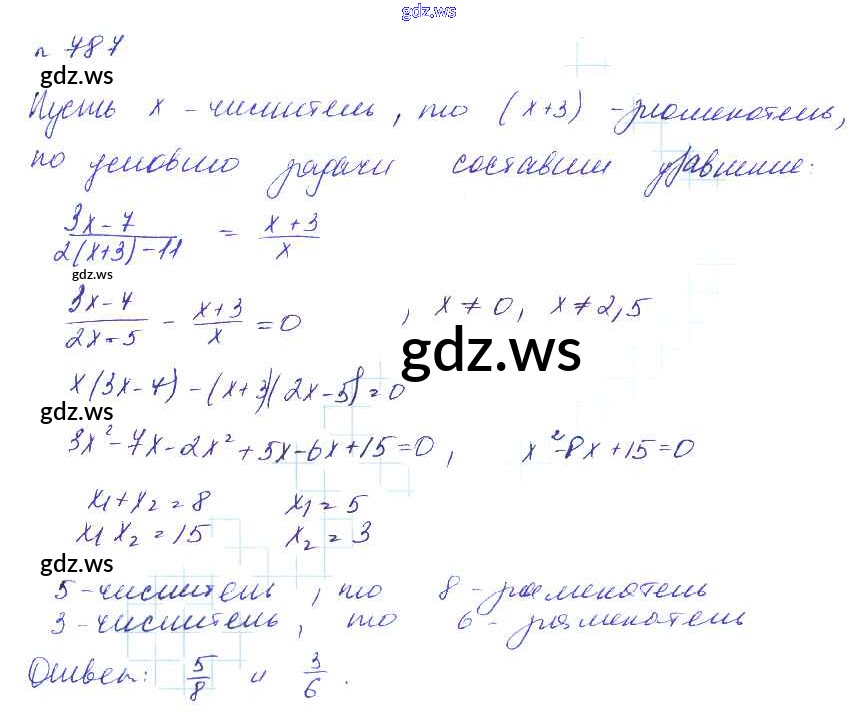 gdz.ws
n 787
gdz.ws
Пусть x - числитель, то (x+3) - знаменатель,
по условию задачи составим уравнение:
3x-7 / 2(x+3)-11 = x+3 / x
gdz.ws
3x-7 / 2x-5 - x+3 / x = 0 , x ≠ 0, x ≠ 2,5
gdz.ws
x(3x-7) - (x+3)(2x-5) = 0
gdz.ws
3x² - 7x - 2x² + 5x - 6x + 15 = 0 , x² - 8x + 15 = 0
x₁ + x₂ = 8 x₁ = 5
x₁ x₂ = 15 x₂ = 3
gdz.ws
5 - числитель, то 8 - знаменатель
3 - числитель, то 6 - знаменатель
Ответ: 5/8 и 3/6.